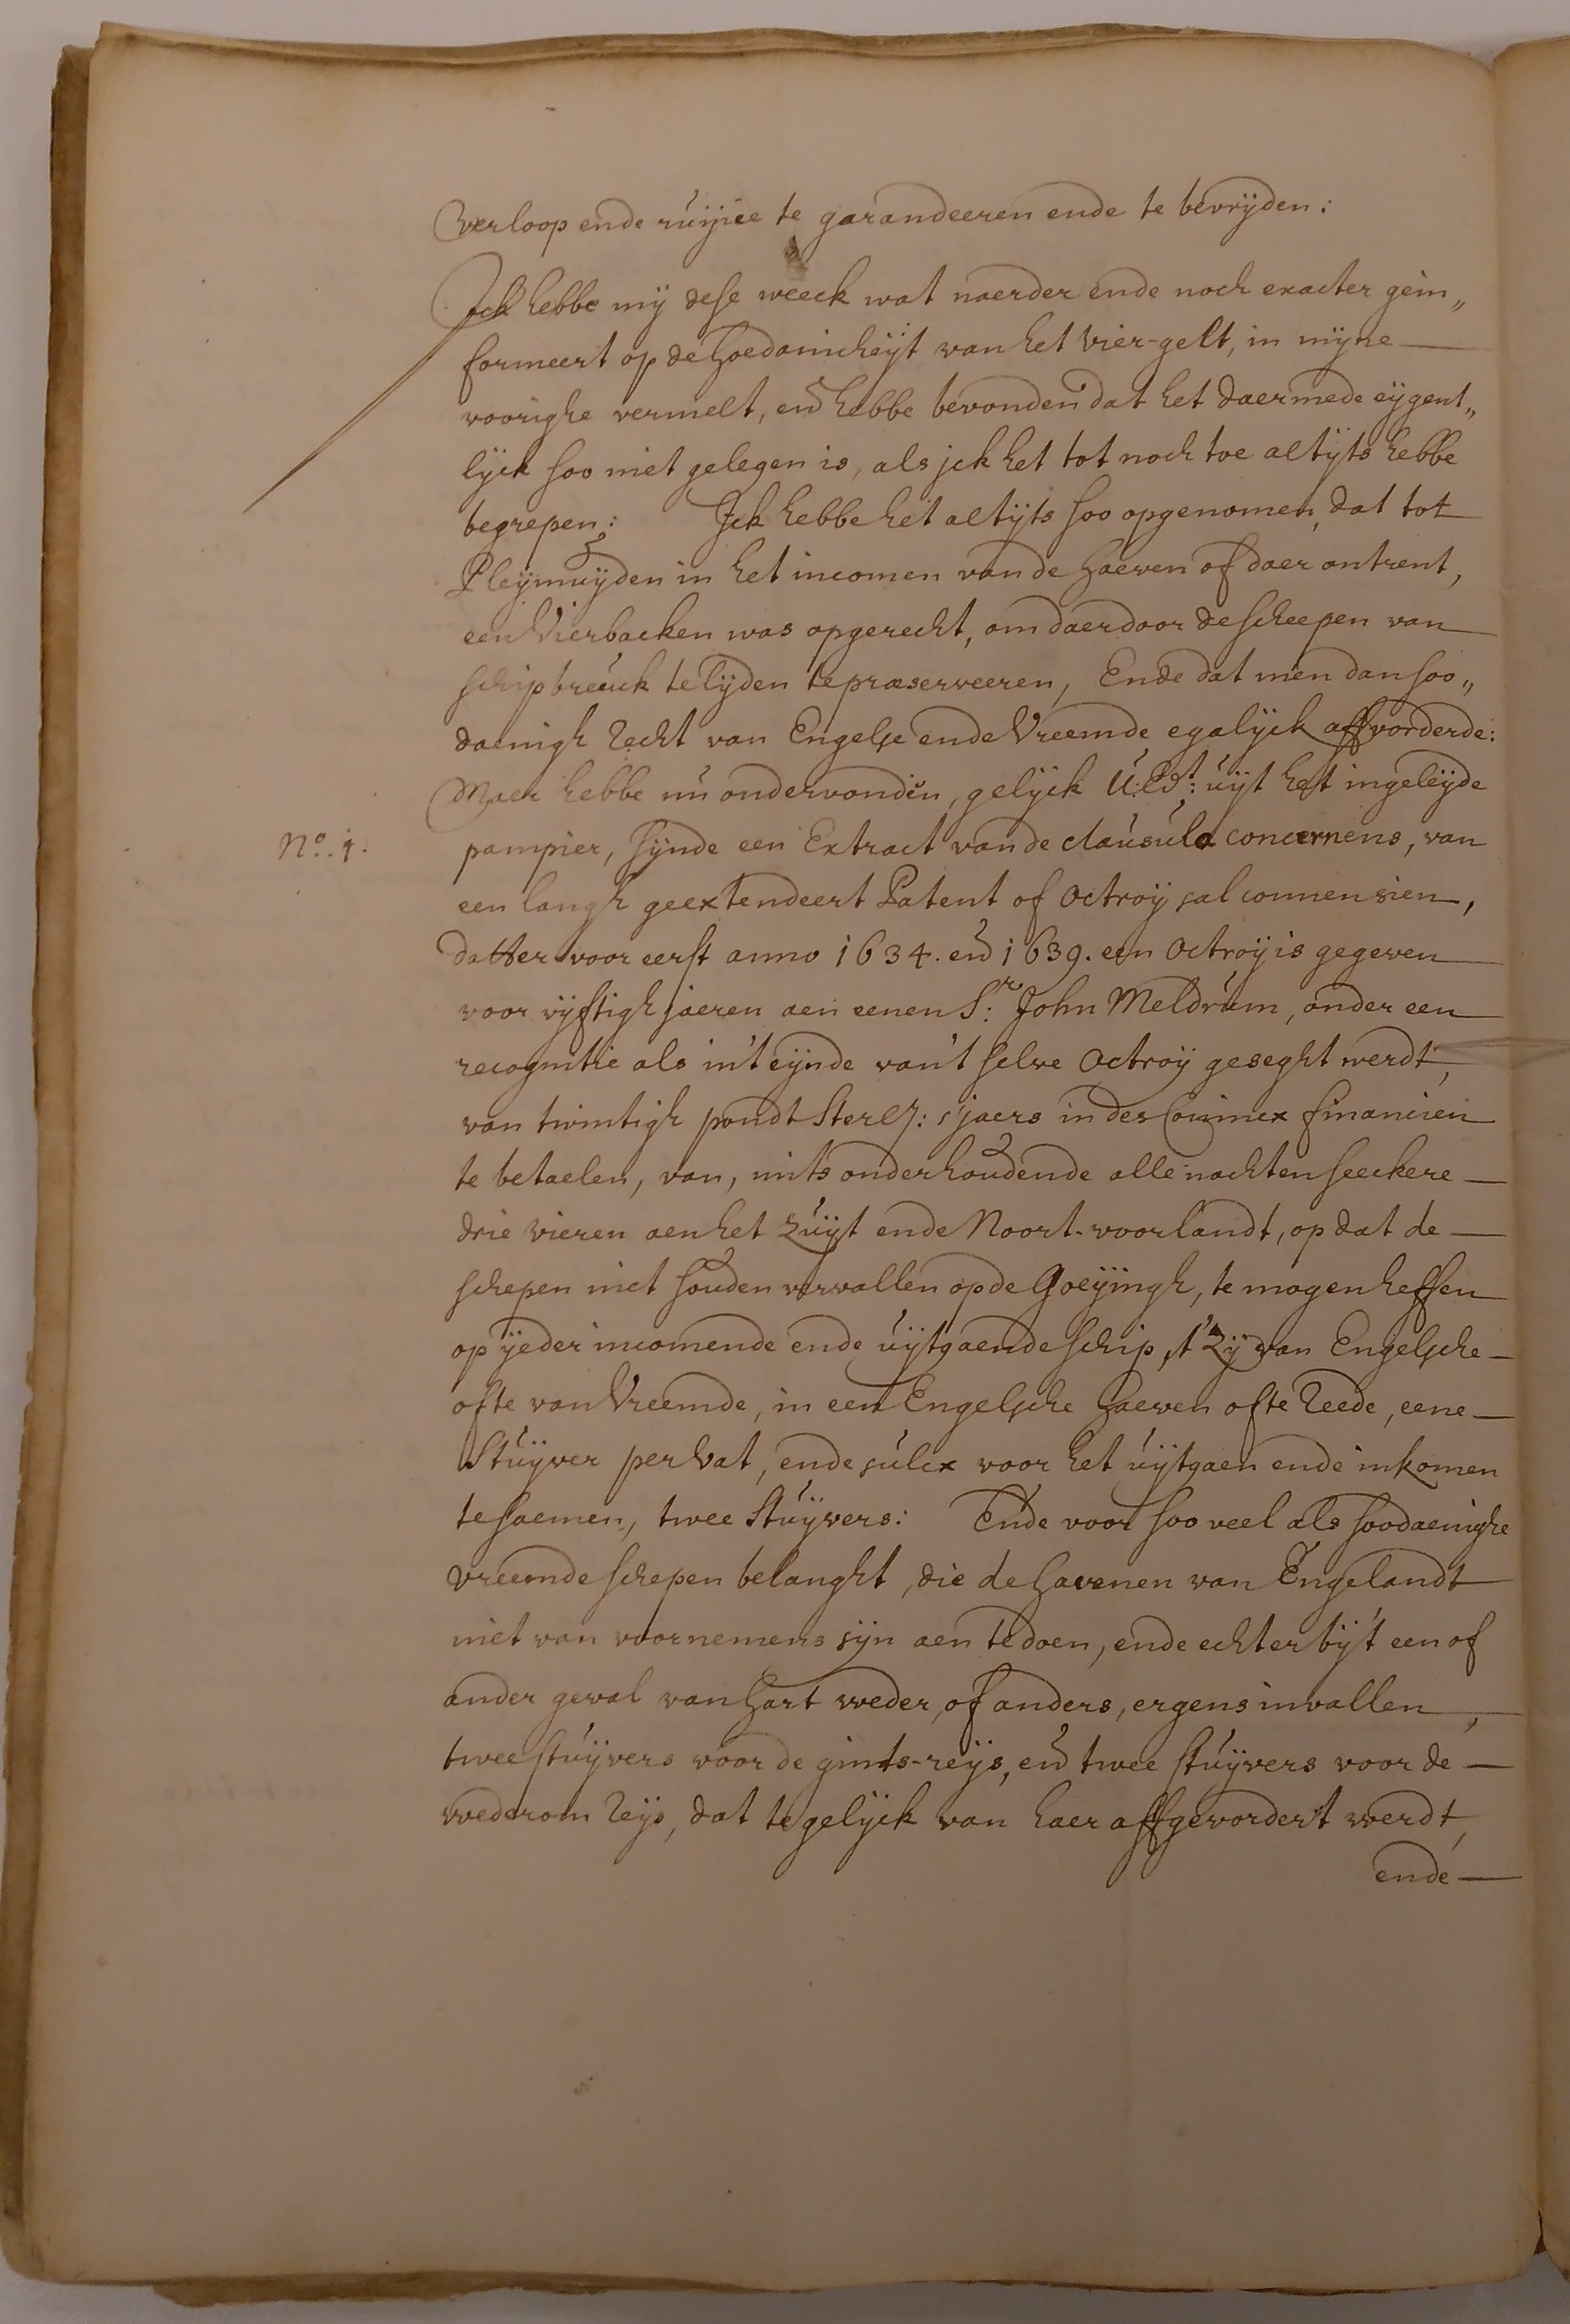 verloop ende ruijne te garandeeren ende te bevrijden:
Ick hebbe mij dese weeck wat naerder ende noch exacter gein„
formeert op de hoedanicheijt van het vier-gelt, in mijne
voorighe vermelt, end hebbe bevonden dat het daermede eijgent„
lijck soo niet gelegen is, als jck het tot noch toe altijts hebbe
begrepen: Ick hebbe het altijts soo opgenomen, dat tot
Pleijmuijden in het incomen van de haeven of daer ontrent,
een Vierbaeken was opgerecht, om daerdoor de scheepen van
schipbreuck te lijden te præserveeren, Ende dat men dan soo„
daenigh Recht van Engelse ende Vreemde egalijck affvorderde:
Maer hebbe nu ondervonden, gelijck U:Ed.t: uijt het ingeleijde
No. 1. pampier, sijnde een Extract van de clausula concernens, van
een langh geextendeert Patent of Octroij sal connen sien,
datter voor eerst anno 1634. end 1639. een Octroij is gegeven
voor vijftigh jaeren aen eenen Sr: John Meldrum, onder een
recognitie als in't eijnde van't selve Octroij geseght werdt,
van twintigh pondt Sterlg: s'jaers in des Coninx financien
te betaelen, van, mits onderhoudende alle nachten seeckere
drie vieren aen het Zuijt ende Noort-voorlandt, op dat de
schepen niet souden vervallen op de Goeijingh, te mogen heffen
op ijeder incomende ende uijtgaende schip, 't Zij van Engelsche
ofte van Vreemde, in een Engelsche haeven ofte Reede, eene
Stuijver per Vat, ende sulcx voor het uijtgaen ende inkomen
tesaemen, twee Stuijvers: Ende voor soo veel als soodaenighe
vreemde schepen belanght, die de havenen van Engelandt
niet van voornemens sijn aen te doen, ende echter bij't een of
ander geval van hart weder, of anders, ergens invallen,
twee stuijvers voor de gints-reijs, end twee stuijvers voor de
wederom Reijs, dat te gelijck van haer affgevordert werdt,
ende